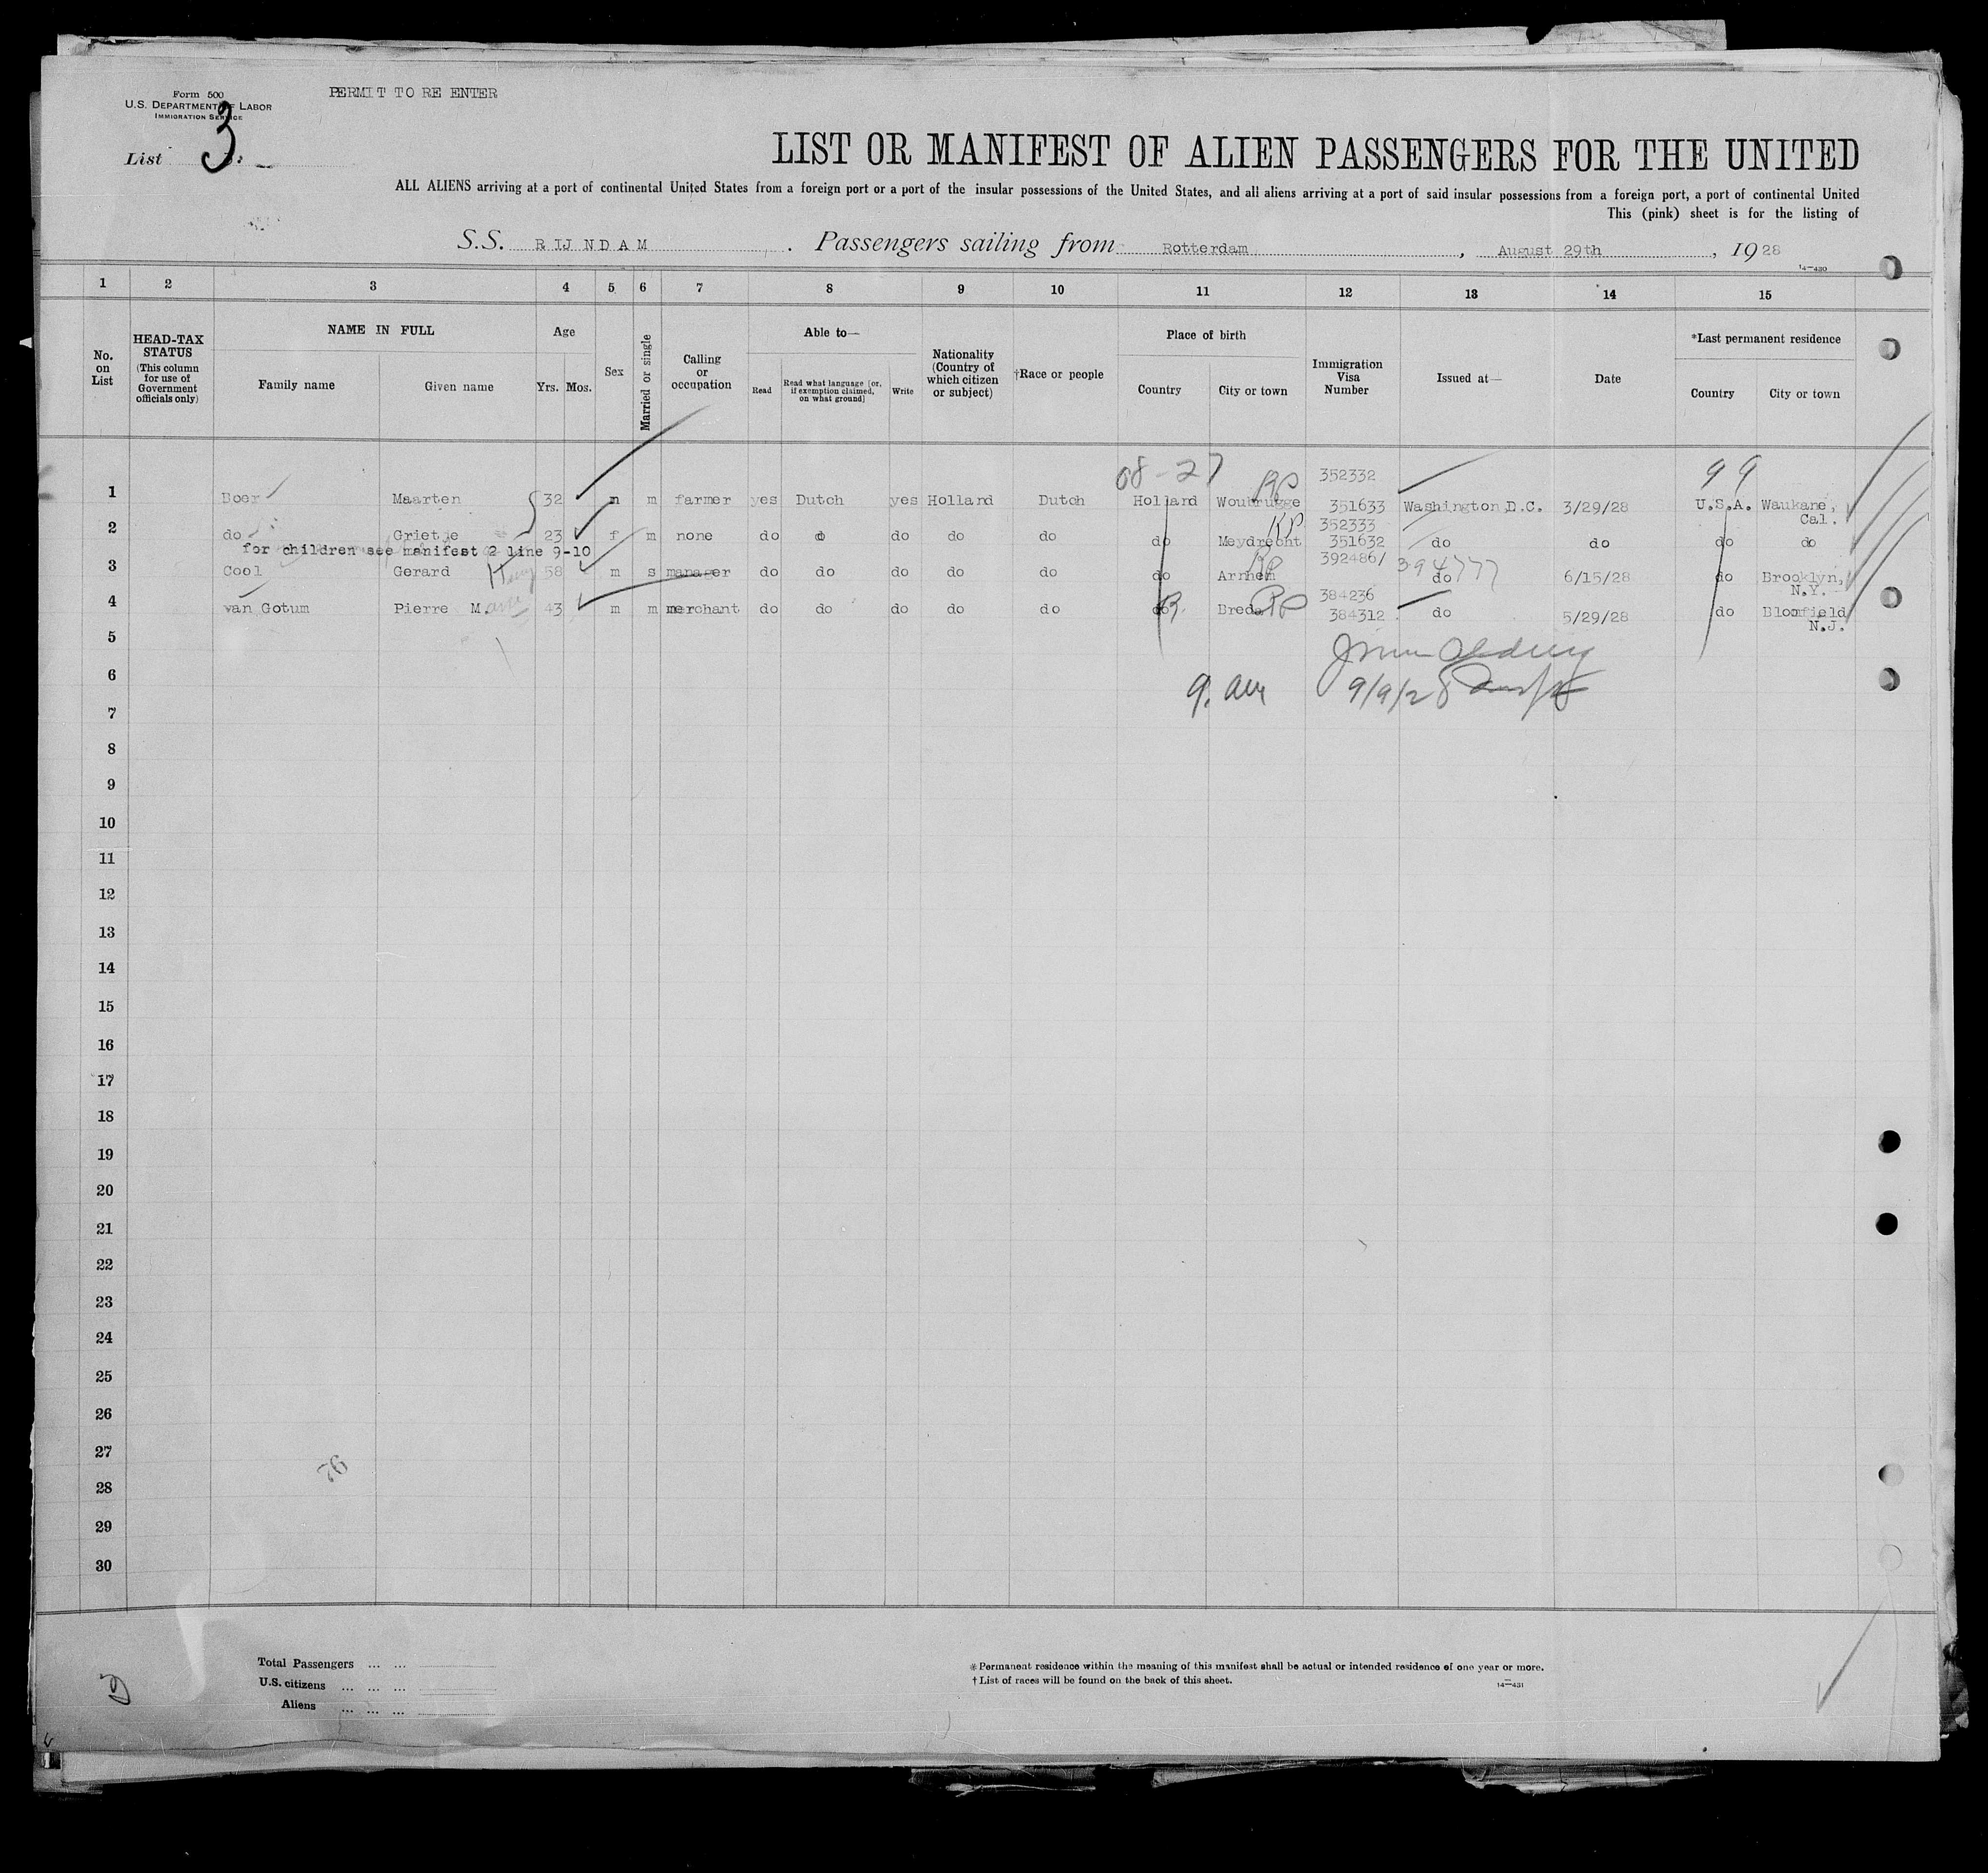 Form 500
U.S. DEPARTMENT OF LABOR
IMMIGRATION SERVICE
PERMIT TO RE ENTER
List 3
LIST OR MANIFEST OF ALIEN PASSENGERS FOR THE UNITED
ALL ALIENS arriving at a port of continental United States from a foreign port or a port of the insular possessions of the United States, and all aliens arriving at a port of said insular possessions from a foreign port, a port of continental United
This (pink) sheet is for the listing of
S.S. RIJNDAM . Passengers sailing from Rotterdam , August 29th , 1928
14—430
1 2 3 4 5 6 7 8 9 10 11 12 13 14 15
No. on List
HEAD-TAX STATUS (This column for use of Government officials only)
NAME IN FULL
Family name Given name
Age
Yrs. Mos.
Sex
Married or single
Calling or occupation
Able to—
Read
Read what language [or, if exemption claimed, on what ground]
Write
Nationality (Country of which citizen or subject)
†Race or people
Place of birth
Country City or town
Immigration Visa Number
Issued at—
Date
*Last permanent residence
Country City or town
08-27 RP 352332 99
1 Boer Maarten 32 m m farmer yes Dutch yes Hollard Dutch Hollard Woubrugge 351633 Washington D.C. 3/29/28 U.S.A. Waukane, Cal.
KP 352333
2 do Grietje 23 f m none do do do do do do Meydrecht 351632 do do do do
for children see manifest 2 line 9-10
RP 392486/ 394777
3 Cool Gerard 58 m s manager do do do do do do Arnhem do 6/15/28 do Brooklyn, N.Y.
RP 384236
4 van Gotum Pierre M. 43 m m merchant do do do do do do Breda 384312 do 5/29/28 do Bloomfield N.J.
5
6 9/9/28
7
8
9
10
11
12
13
14
15
16
17
18
19
20
21
22
23
24
25
26
27
76
28
29
30
Total Passengers ... ...
U.S. citizens ... ... ...
Aliens ... ... ...
* Permanent residence within the meaning of this manifest shall be actual or intended residence of one year or more.
† List of races will be found on the back of this sheet.
14—431